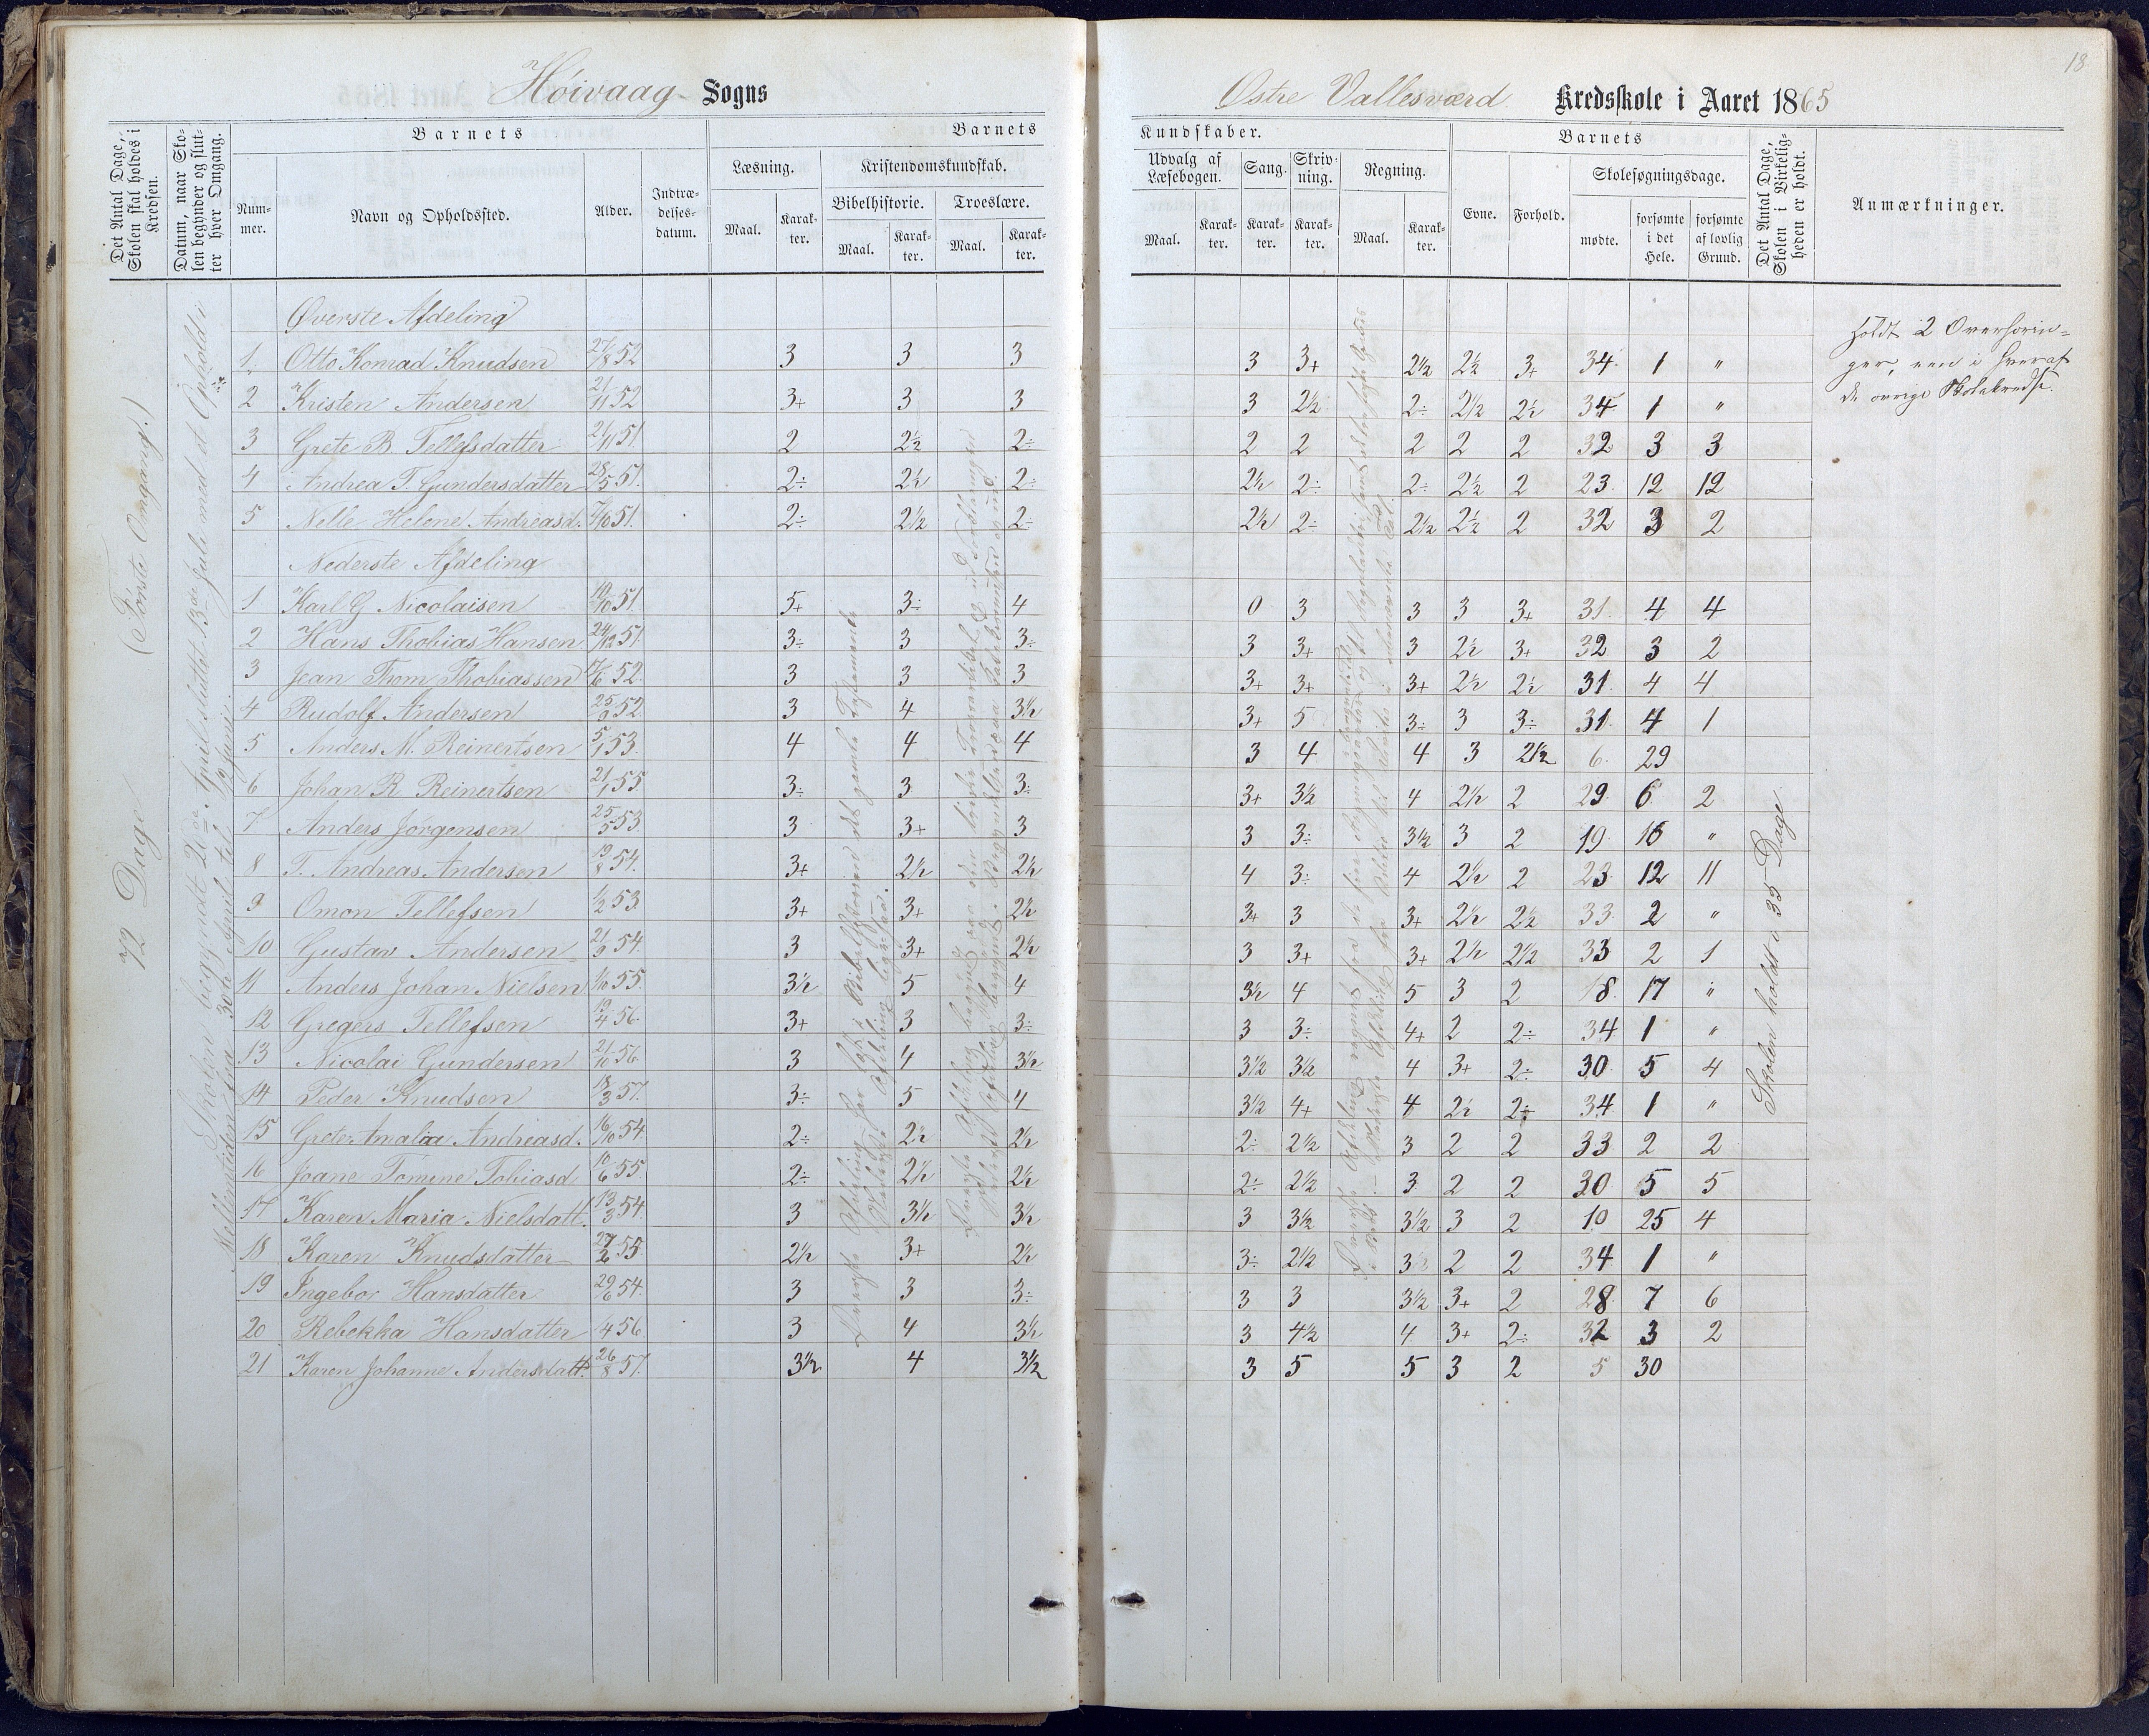 18
Høivaag Sogns
Østre Vallesværd Kredsskole i Aaret 1865
Det Antal Dage, Skolen skal holdes i Kredsen.
Datum, naar Skolen begynder og slutter hver Omgang.
Barnets
Nummer.
Navn og Opholdssted.
Alder.
Indtrædelsesdatum.
Barnets
Læsning.
Maal.
Karakter.
Kristendomskundskab.
Bibelhistorie.
Maal.
Karakter.
Troeslære.
Maal.
Karakter.
Kundskaber.
Udvalg af Læsebogen.
Maal.
Karakter.
Sang.
Karakter.
Skrivning.
Karakter.
Regning.
Maal.
Karakter.
Barnets
Evne.
Forhold.
Skolesøgningsdage.
mødte.
forsømte i det Hele.
forsømte af lovlig Grund.
Det Antal Dage, Skolen i Virkeligheden er holdt.
Anmærkninger.
72 Dage (Første Omgang.)
Skolen begyndt 2den April sluttet 13de Juli med et Ophold i
Mellemtiden fra 30te April til
Øverste Afdeling
1. Otto Konrad Knudsen 27/8 52 3 3 3 3 3+ 2½ 2½ 3+ 34 1 "
2 Kristen Andersen 21/11 52 3+ 3 3 3 2½ 2÷ 2½ 2½ 34 1 "
3 Grete B. Tellefsdatter 21/11 51 2 2½ 2÷ 2 2 2 2 2 32 3 3
4 Andrea T. Gundersdatter 28/5 51. 2÷ 2½ 2÷ 2½ 2÷ 2÷ 2½ 2 23 12 12
5 Nelle Helene Andreasd. 7/10 51. 2÷ 2½ 2÷ 2½ 2÷ 2½ 2½ 2 32 3 2
Nederste Afdeling
1 Karl G Nicolaisen 10/10 51 5+ 3÷ 4 0 3 3 3 3+ 31 4 4
2 Hans Thobias Hansen 24/12 51 3÷ 3 3÷ 3 3+ 3 2½ 3+ 32 3 2
3 Jean Thom Thobiassen 17/6 52 3 3 3 3+ 3+ 3+ 2½ 2½ 31 4 4
4 Rudolf Andersen 25/9 52 3 4 3½ 3+ 5 3÷ 3 3÷ 31 4 1
5 Anders M. Reinertsen 5/1 53. 4 4 4 3 4 4 3 2½ 6 29
6 Johan R Reinertsen 21/1 55 3÷ 3 3÷ 3+ 3½ 4 2½ 2 29 6 2
7 Anders Jørgensen 25/5 53 3 3+ 3 3 3÷ 3½ 3 2 19 16 "
8 T. Andreas Andersen 19/8 54. 3+ 2½ 2½ 4 3÷ 4 2½ 2 23 12 11
9 Omon Tellefsen 1/2 53 3+ 3+ 2½ 3+ 3 3+ 2½ 2½ 33 2 "
10 Gustav Andersen 21/9 54. 3 3+ 2½ 3 3+ 3+ 2½ 2½ 33 2 1
11 Anders Johan Nielsen 1/10 55. 3½ 5 4 3½ 4 5 3 2 18 17 "
12 Gregers Tellefsen 19/4 56 3+ 3 3÷ 3 3÷ 4+ 2 2÷ 34 1 "
13 Nicolai Gundersen 21/10 56 3 4 3½ 3½ 3½ 4 3+ 2÷ 30 5 4
14 Peder Knudsen 18/3 57. 3÷ 5 4 3½ 4+ 4 2½ 2÷ 34 1 "
15 Grete Amalia Andreasd. 16/10 54 2÷ 2½ 2½ 2÷ 2½ 3 2 2 33 2 2
16 Joane Tomine Tobiasd 10/6 55 2÷ 2½ 2½ 2÷ 2½ 3 2 2 30 5 5
17 Karen Maria Nielsdatt. 13/3 54 3 3½ 3½ 3 3½ 3½ 3 2 10 25 4
18 Karen Knudsdatter 27/2 55 2½ 3+ 2½ 3÷ 2½ 3 2 2 34 1 "
19 Ingebor Hansdatter 29/6 54. 3 3 3÷ 3 3 3½ 3+ 2 28 7 6
20 Rebekka Hansdatter 4 56 3 4 3½ 3 4½ 4 3+ 2÷ 32 3 2
21 Karen Johanne Andersdatt. 26/8 57. 3½ 4 3½ 3 5 5 3 2 5 30
Skolen holdt i 35 Dage
Holdt 2 Overhørin-
ger, een i hver af
de øvrige Skolekredse.